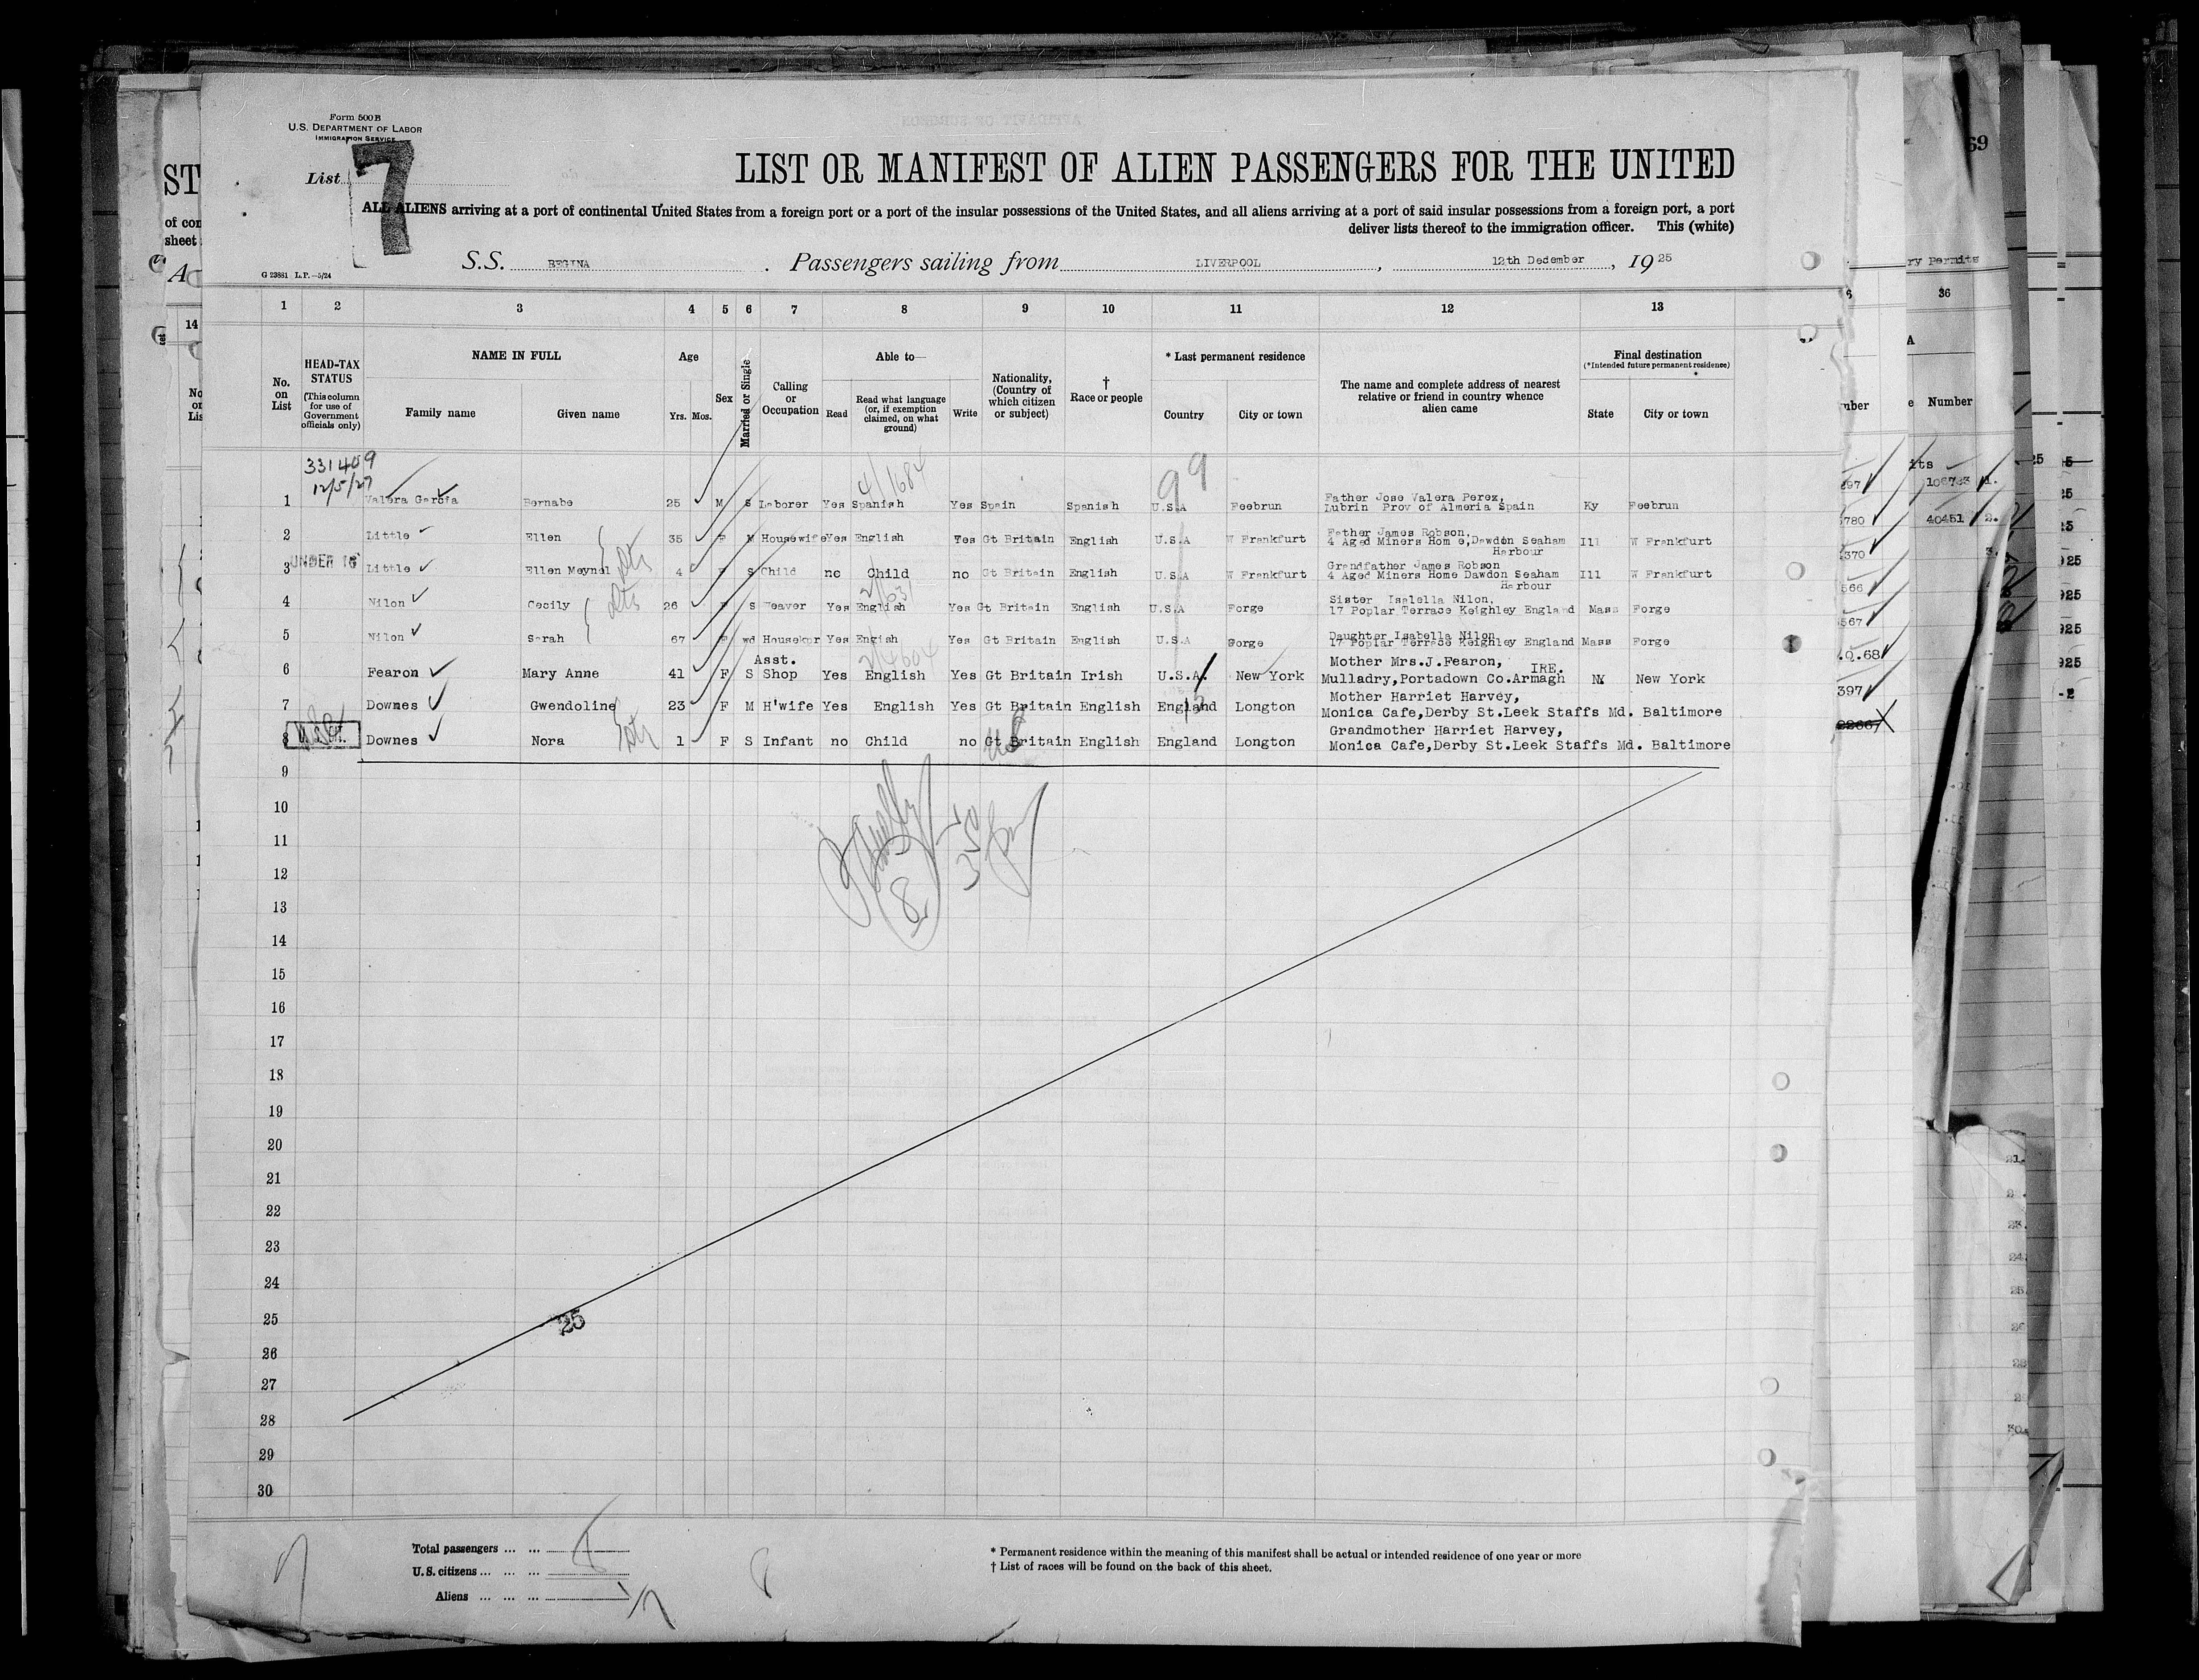 Form 500B
U.S. DEPARTMENT OF LABOR
IMMIGRATION SERVICE
List 7
LIST OR MANIFEST OF ALIEN PASSENGERS FOR THE UNITED
ALL ALIENS arriving at a port of continental United States from a foreign port or a port of the insular possessions of the United States, and all aliens arriving at a port of said insular possessions from a foreign port, a port
deliver lists thereof to the immigration officer. This (white)
S.S. REGINA . Passengers sailing from LIVERPOOL , 12th Dedember , 19 25
G 23881 L.P.—5/24
1 2 3 4 5 6 7 8 9 10 11 12 13
No. on List
HEAD-TAX STATUS (This column for use of Government officials only)
NAME IN FULL
Family name Given name
Age
Yrs. Mos.
Sex
Married or Single
Calling or Occupation
Able to—
Read
Read what language (or, if exemption claimed, on what ground)
Write
Nationality, (Country of which citizen or subject)
† Race or people
* Last permanent residence
Country City or town
The name and complete address of nearest relative or friend in country whence alien came
Final destination
(*Intended future permanent residence)
State City or town
331409
12/5/27
4/1684
99
1 Valera Garcia Bernabe 25 M S Laborer Yes Spanish Yes Spain Spanish U.S.A Feebrun Father Jose Valera Perez, Lubrin Prov of Almeria Spain Ky Feebrun
2 Little Ellen 35 F M Housewife Yes English Yes Gt Britain English U.S.A W Frankfurt Father James Robson, 4 Aged Miners Hom e,Dawdon Seaham Harbour Ill W Frankfurt
UNDER 16
3 Little Ellen Meynel 4 F S Child no Child no Gt Britain English U.S.A W Frankfurt Grandfather James Robson 4 Aged Miners Home Dawdon Seaham Harbour Ill W Frankfurt
2/631
4 Nilon Cecily 26 F S Weaver Yes English Yes Gt Britain English U.S.A Forge Sister Isalella Nilon, 17 Poplar Terrace Keighley England Mass Forge
5 Nilon Sarah 67 F wd Housekpr Yes Engish Yes Gt Britain English U.S.A Forge Daughter Isabella Nilon 17 Poplar Terrace Keighley England Mass Forge
2/4604
6 Fearon Mary Anne 41 F S Asst. Shop Yes English Yes Gt Britain Irish U.S.A. New York Mother Mrs.J.Fearon, IRE. Mulladry,Portadown Co.Armagh NY New York
7 Downes Gwendoline 23 F M H'wife Yes English Yes Gt Britain English England Longton Mother Harriet Harvey, Monica Cafe,Derby St.Leek Staffs Md. Baltimore
8 Downes Nora 1 F S Infant no Child no Gt Britain English England Longton Grandmother Harriet Harvey, Monica Cafe,Derby St.Leek Staffs Md. Baltimore
9
10
11
12
13
14
15
16
17
18
19
20
21
22
23
24
25
26
27
28
29
30
8
25
Total passengers ... ...
U.S. citizens ... ... ...
Aliens ... ... ...
* Permanent residence within the meaning of this manifest shall be actual or intended residence of one year or more
† List of races will be found on the back of this sheet.
ST
of con
sheet
14
69
ry Permits
36
Number
106723 1.
40451 2.